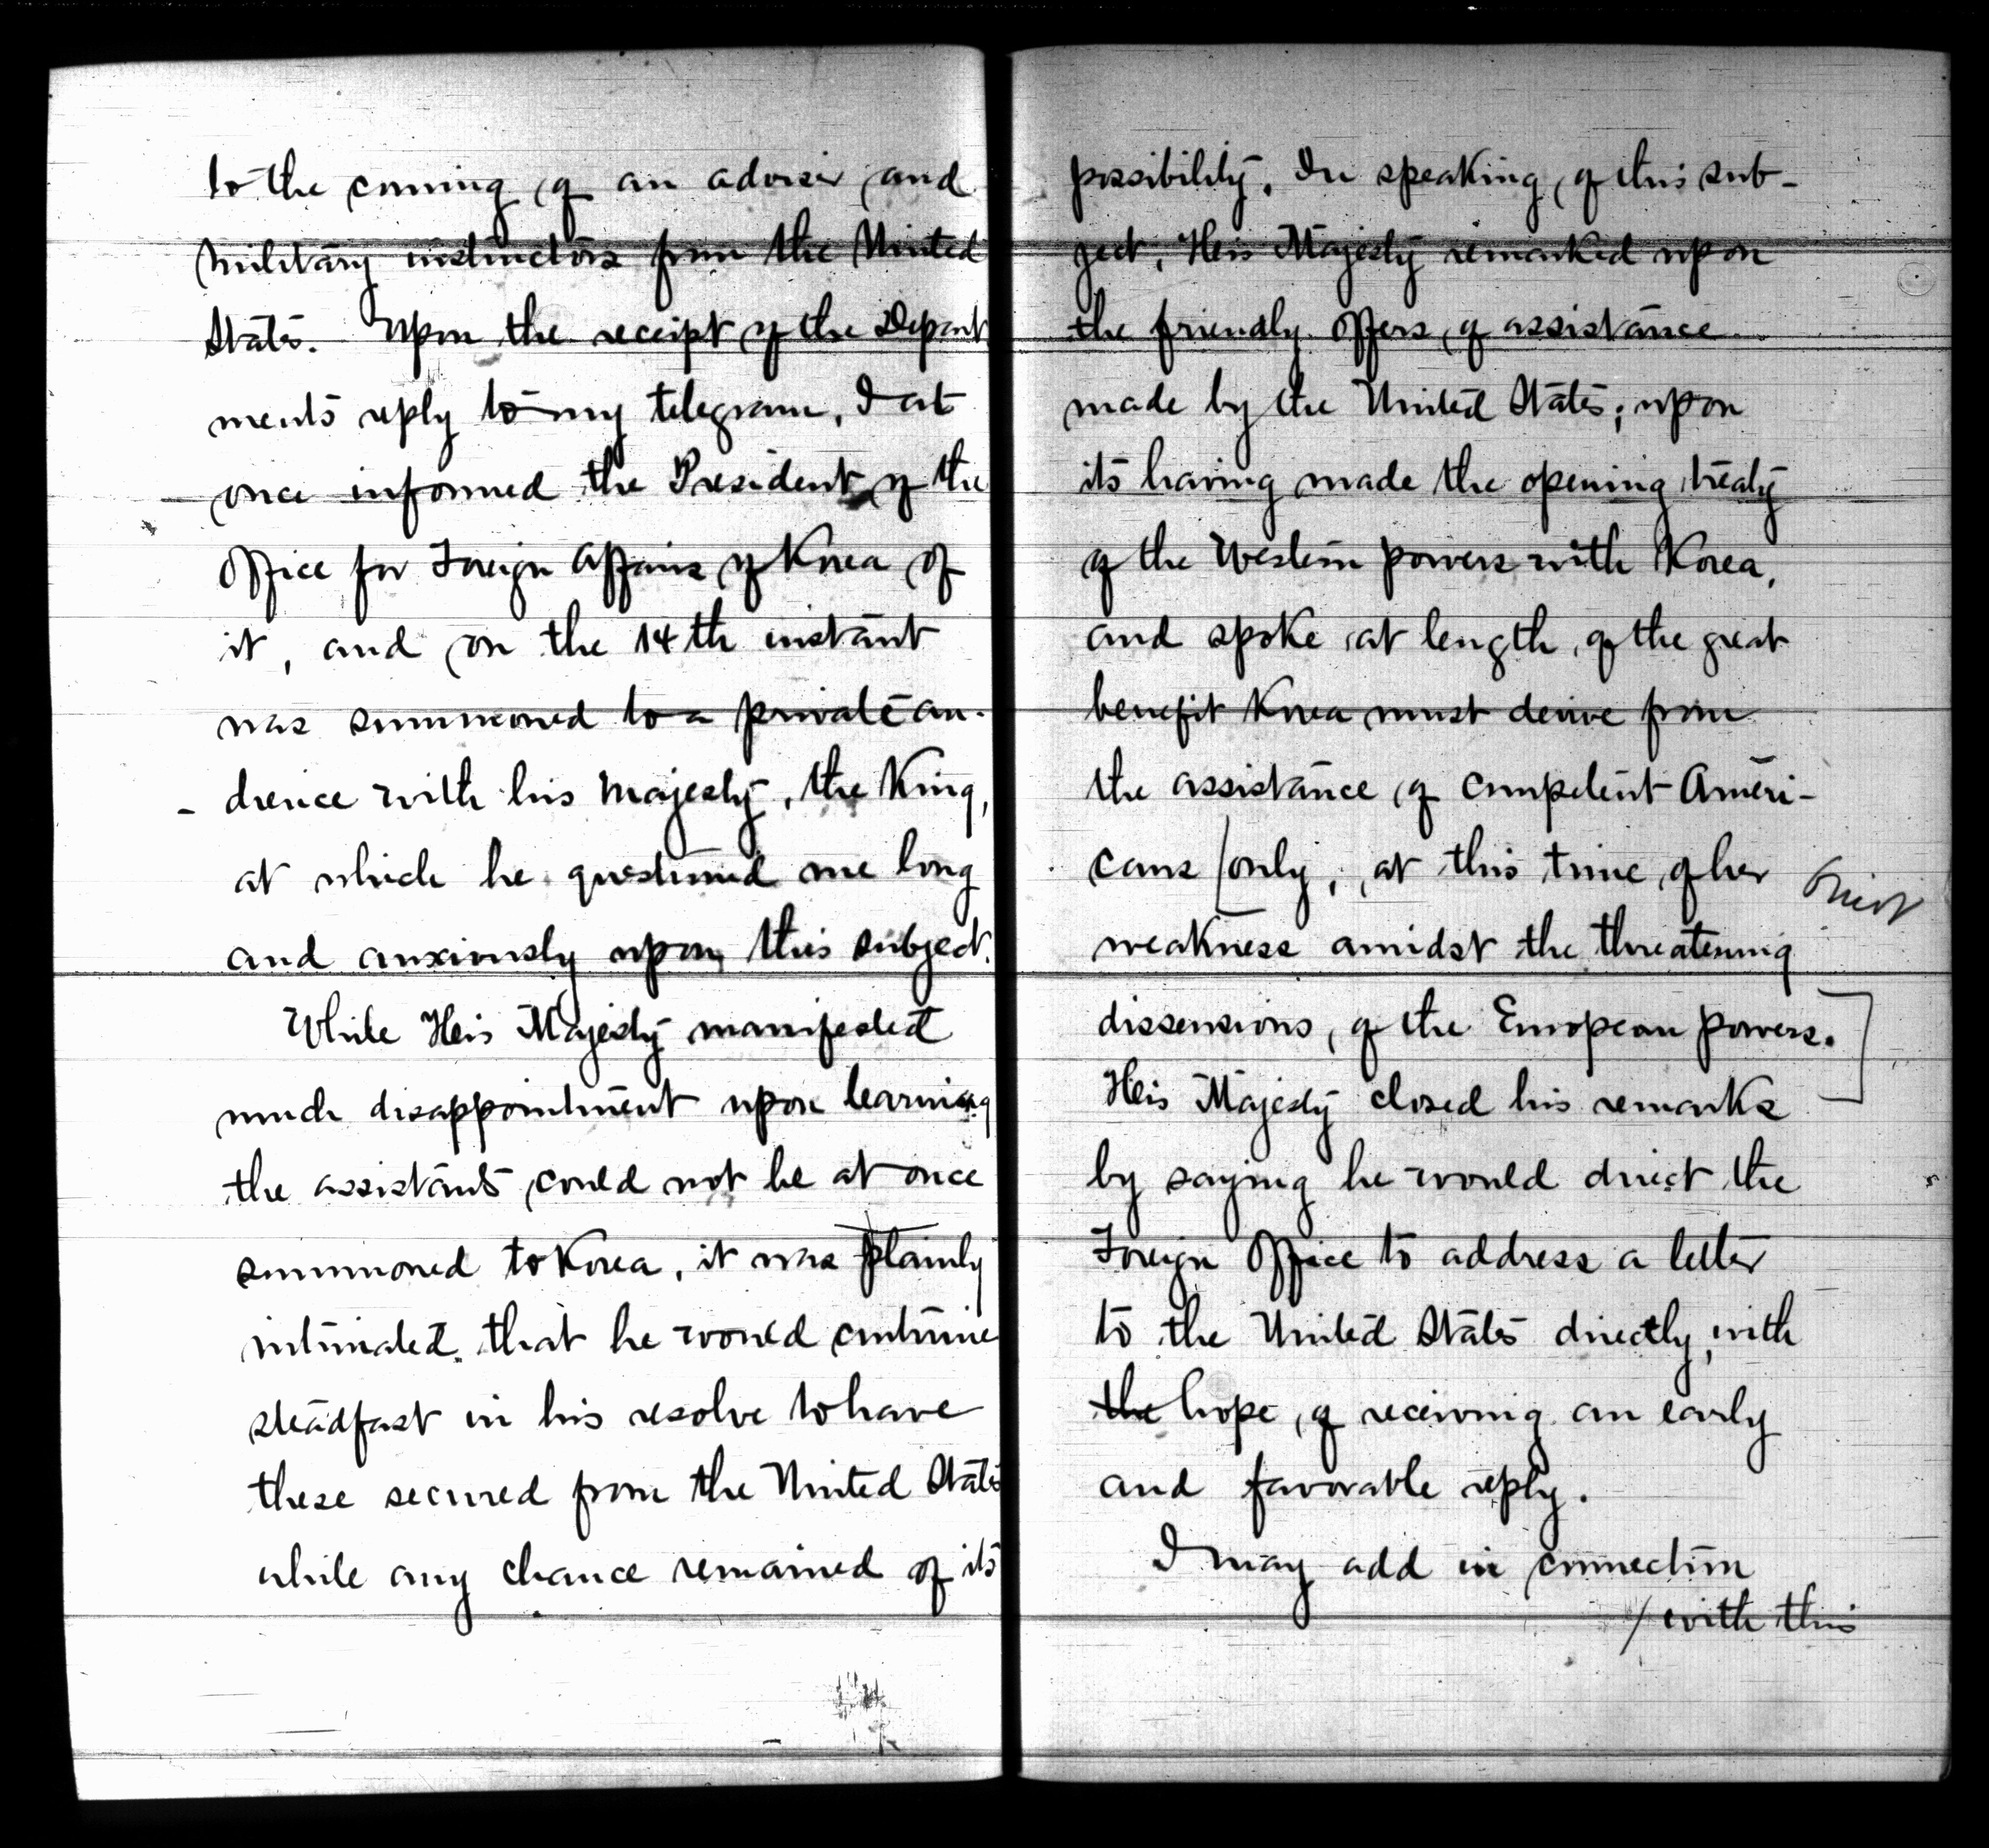 to the coming of an adviser and
military instructors from the United
States. Upon the receipt of the Depart
ments reply to my telegram, I at
once informed the President of the
Office for Foreign Affairs of Korea of
it, and on the 14th instant
was summoned to a private au-
dience with his Majesty, the King,
at which he questioned me long
and anxiously upon this subject.
While His Majesty manifested
much disappointment upon learning
the assistants could not be at once
summoned to Korea, it was plainly
intimated that he would continue
steadfast in his resolve to have
these secured from the United States
while any chance remained of its
possibility. In speaking of this sub-
ject, His Majesty remarked upon
the friendly offers of assistance
made by the United States; upon
its having made the opening treaty
of the Western powers with Korea,
and spoke at length of the great
benefit Korea must derive from
the assistance of competent Ameri-
cans [only, at this time of her
Omit
weakness amidst the threatening
dissensions, of the European powers.]
His Majesty closed his remarks
by saying he would direct the
Foreign Office to address a letter
to the United States directly, with
the hope of receiving an early
and favorable reply.
I may add in connection
/ with this